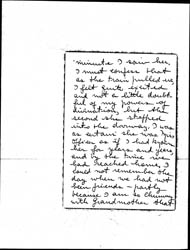 minute I saw her
I must confess that
as the train pulled in
I felt quite excited
and not a little doubt
ful of my powers of
divination, but the
second she stepped
into the doorway, I was
as certain she was
as if I had known
her for years and years
and by the time we
had reached home, I
could not remember the
day when we had not
been friends - partly
because I am so
with Grandmother that